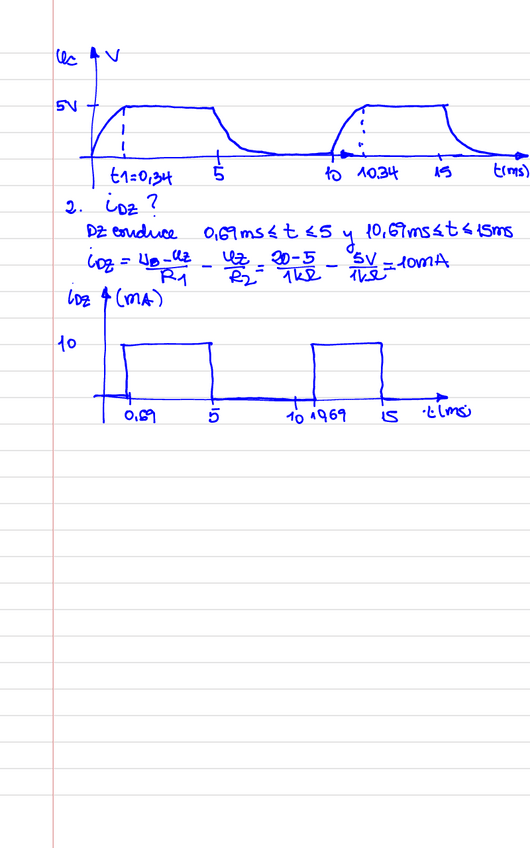 uc V
5V
t1=0,34 5 10 10,34 15 t(ms)
2. iDZ ?
DZ conduce 0,69ms ≤ t ≤ 5 y 10,69ms ≤ t ≤ 15ms
iDZ = (uB-uZ)/R1 - uZ/R2 = (20-5)/1kΩ - 5V/1kΩ = 10mA
iDZ (mA)
10
0,69 5 10 10,69 15 t(ms)